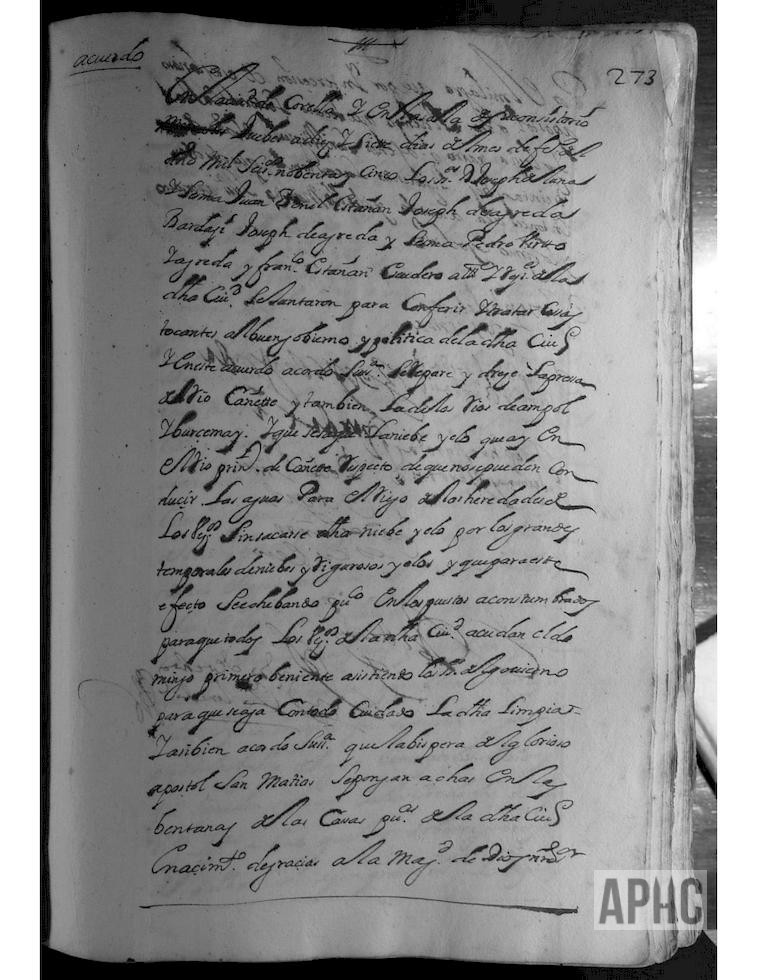 acuerdo
273
En la ciud. de Corella Y En la sala de su consistorio
Jueber a diez Y siete dias del mes de feb. del
año Mil Seis. nobenta y Cinco Los ss.es D Joseph de luna
Y Sema Juan Benel Estañan Joseph de agreda
Bardaji Joseph de agreda y Sema Pedro Virto
Y agreda y fran.co Estañan Escudero all.e Y Regi.es de la
dha Ciu.d Se Juntaron para Conferir Y tratar Cosas
tocantes al buen gobierno y politica de la dha Ciud
Y En este acuerdo acordo Su s.a Se Repare y dreje La presa
del Rio Cañete y tambien La de los Rios de ampol
Y burcemay. Y que Se saque La niebe y elo que ay En
el Rio prin.l de Cañete Respecto de que no se pueden Con
ducir Las aguas Para el Riego de las heredades de
Los Vz.os Sin sacarse dha niebe y elo por los grandes
temporales de niebes y Rigurosos yelos y que para este
efecto Se eche bando pu.co En los puestos acostumbrados
para que todos Los Vz.os de la dha Ciu.d acudan el do
mingo primero beniente asistiendo los ss. del govierno
para que se aga Con todo Cuidado La dha Limpia-
Tanbien acordo Su s.a que la bispera del glorioso
apostol San Matias Se pongan achas En las
bentanas de las Casas pu.cas de la dha Ciud
En acim.to de gracias a la Mag.d de Dios nro s.or
APHC